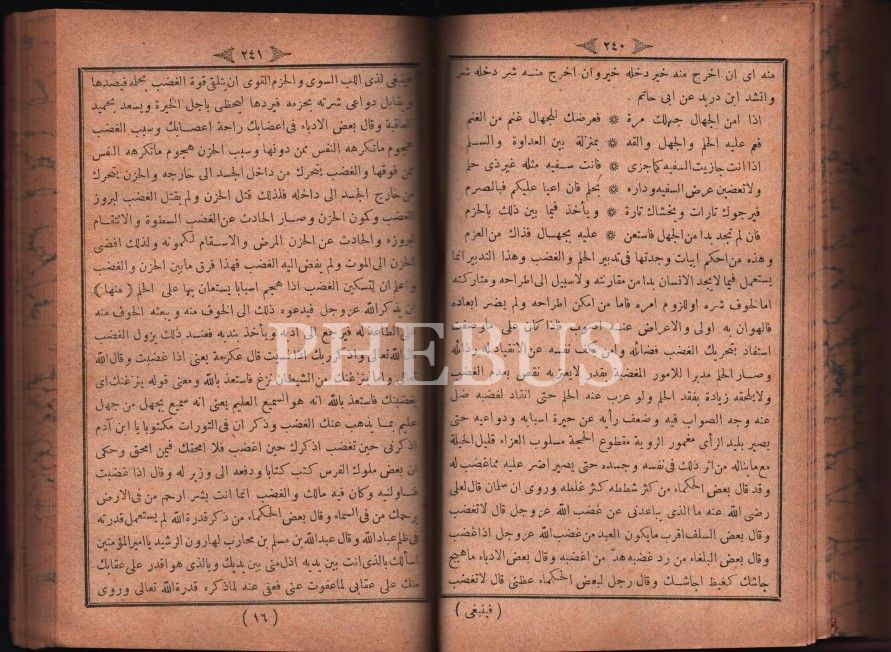 ٢٤٠
منه اى ان اخرج منه خير دخله خير وان اخرج منه شر دخله شر
وانشد ابن دريد عن ابى حاتم .
اذا امن الجهال جهلك مرة ۞ فعرضك للجهال غنم من الغنم
فعم عليه الحلم والجهل والقه ۞ بمنزلة بين العداوة والسلم
اذا انت جازيت السفيه كما جزى ۞ فانت سفيه مثله غير ذى حلم
ولا تعضبن عرض السفيه وداره ۞ بحلم فان اعيا عليكم فبالصرم
فيرجوك تارات ويخشاك تارة ۞ ويأخذ فيما بين ذلك بالحزم
فان لم تجد بدا من الجهل فاستعن ۞ عليه بجهال فذاك من العزم
وهذه من احكم ابيات وجدتها فى تدبير الحلم والغضب وهذا التدبير انما
يستعمل فيما لا يجد الانسان بدا من مقارنته ولا سبيل الى اطراحه ومتاركته
اما لخوف شره او للزوم امره فاما من امكن اطراحه ولم يضر ابعاده
فالهوان به اولى والاعراض عنه اصوب فاذا كان على ما وصفت
استفاد بتحريك الغضب فضائله وامن بكف نفسه عن الانقياد له رذائله
وصار الحلم مدبرا للامور المغضبة بقدر لا يعتريه نقص بعدم الغضب
ولا يلحقه زيادة بفقد الحلم ولو عزب عنه الحلم حتى انقاد لغضبه ضل
عنه وجه الصواب فيه وضعف رأيه عن خبرة اسبابه ودواعيه حتى
يصير بليد الرأى مغمور الروية مقطوع الحجة مسلوب العزاء قليل الحيلة
مع ما يناله من اثر ذلك فى نفسه وجسده حتى يصير اضر عليه مما غضب له
وقد قال بعض الحكماء من كثر شططه كثر غلطه وروى ان سلمان قال لعلى
رضى الله عنه ما الذى يباعدنى عن غضب الله عز وجل قال لا تغضب
وقال بعض السلف اقرب ما يكون العبد من غضب الله عز وجل اذا غضب
وقال بعض البلغاء من رد غضبه هد من اغضبه وقال بعض الادباء ما هيج
جاشك كغيظ اجاشك وقال رجل لبعض الحكماء عظنى قال لا تغضب
( فينبغى )
٢٤١
فينبغى لذى اللب السوى والحزم القوى ان يتلقى قوة الغضب بحلمه فيصدها
ويقابل دواعى شرته بحزمه فيردها ليحظى باجل الخيرة ويسعد بحميد
العاقبة وقال بعض الادباء فى اغضائك راحة اعصابك وسبب الغضب
هجوم ما تكرهه النفس ممن دونها وسبب الحزن هجوم ما تكرهه النفس
ممن فوقها والغضب يتحرك من داخل الجسد الى خارجه والحزن يتحرك
من خارج الجسد الى داخله فلذلك قتل الحزن ولم يقتل الغضب لبروز
الغضب وكمون الحزن وصار الحادث عن الغضب السطوة والانتقام
لبروزه والحادث عن الحزن المرض والاسقام لكمونه ولذلك افضى
الحزن الى الموت ولم يفض اليه الغضب فهذا فرق ما بين الحزن والغضب
واعلم ان لتسكين الغضب اذا هجم اسبابا يستعان بها على الحلم ( منها )
ان يذكر الله عز وجل فيدعوه ذلك الى الخوف منه ويبعثه الخوف منه
على الطاعة له فيرجع الى ادبه ويأخذ بندبه فعند ذلك يزول الغضب
قال الله تعالى واذكر ربك اذا نسيت قال عكرمة يعنى اذا غضبت وقال الله
تعالى واما ينزغنك من الشيطان نزغ فاستعذ بالله ومعنى قوله ينزغنك اى
يغضبنك فاستعذ بالله انه هو السميع العليم يعنى انه سميع بجهل من جهل
عليم بما يذهب عنك الغضب وذكر ان فى التورات مكتوبا يا ابن آدم
اذكرنى حين تغضب اذكرك حين اغضب فلا امحقك فيمن امحق وحكى
ان بعض ملوك الفرس كتب كتابا ودفعه الى وزير له وقال اذا غضبت
فناولنيه وكان فيه مالك والغضب انما انت بشر ارحم من فى الارض
يرحمك من فى السماء وقال بعض الحكماء من ذكر قدرة الله لم يستعمل قدرته
فى ظلم عباد الله وقال عبد الله بن مسلم بن محارب لهارون الرشيد يا امير المؤمنين
اسألك بالذى انت بين يديه اذل منى بين يديك وبالذى هو اقدر على عقابك
منك على عقابى لما عفوت عنى فعفى عنه لما ذكره قدرة الله تعالى وروى
( ١٦ )
PHEBUS